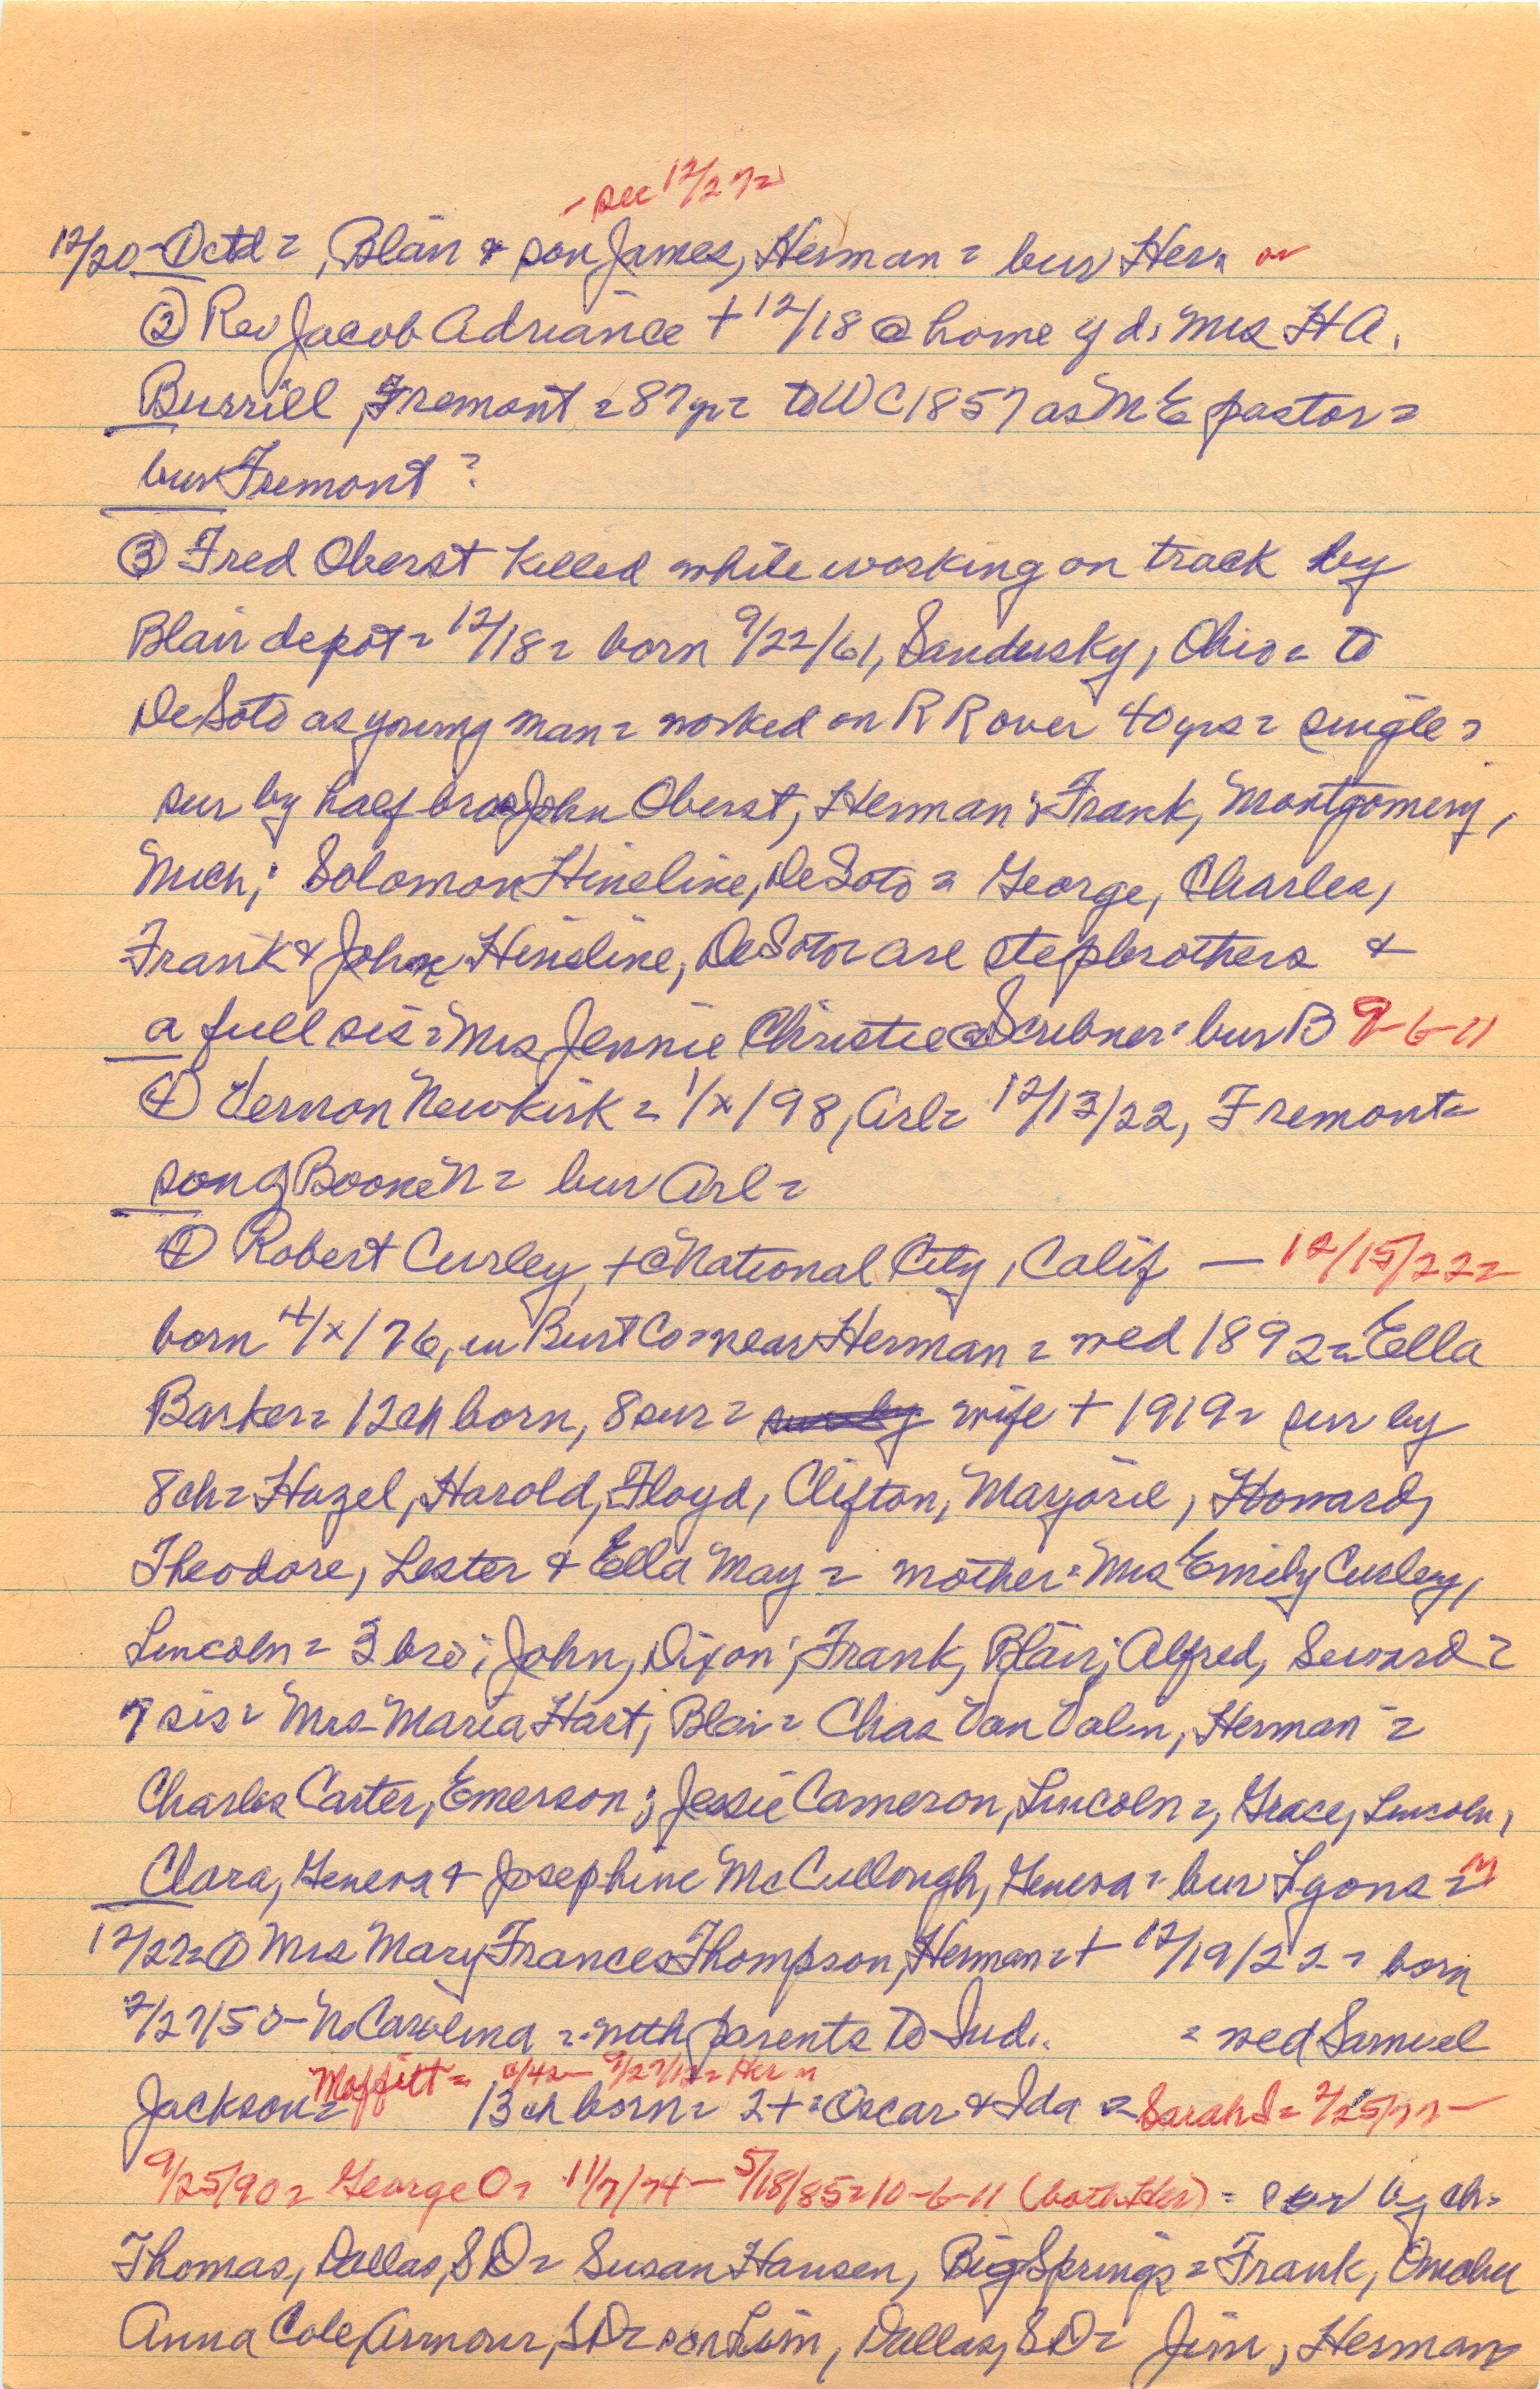 - see 12/27=
12/20- Octd=, Blair & son James, Herman = bur Her n
② Rev Jacob Adriance + 12/18 @ home of d: Mrs H A.
Burrill, Fremont = 87yr= to W C 1857 as M E pastor=
bur Fremont?
③ Fred Oberst killed while working on track by
Blair depot= 12/18= born 9/22/61, Sandusky, Ohio= to
DeSoto as young man= worked on R R over 40yrs= single=
sur by half bros John Oberst, Herman; Frank, Montgomery,
Mich; Solomon Hineline, DeSoto = George, Charles,
Frank & John Hineline, DeSoto= are stepbrothers &
a full sis= Mrs Jennie Christie @ Scribner= bur B 9-6-11
④ Vernon Newkirk = 1/x/98, Arl= 12/13/22, Fremont=
son of Boone N= bur Arl=
① Robert Curley, + @ National City, Calif — 12/15/22=
born 4/x/76, in Burt Co= near Herman = wed 1892= Ella
Barker= 12ch born, 8 sur= wife + 1919= sur by
8ch= Hazel, Harold, Floyd, Clifton, Marjorie, Howard,
Theodore, Lester & Ella May = mother= Mrs Emily Curley,
Lincoln= 3 bro; John, Dixon; Frank, Blair; Alfred, Seward=
7 sis= Mrs Maria Hart, Blair= Chas Van Valin, Herman=
Charles Carter, Emerson; Jessie Cameron, Lincoln=, Grace, Lincoln,
Clara, Geneva & Josephine McCullough, Geneva= bur Lyons=
12/27=① Mrs Mary Frances Thompson, Herman= + 12/19/22= born
2/27/50- No Carolina = with parents to Ind. = wed Samuel
Moffitt= 9/27/12= Her n
Jackson= 13 ch born= 2+= Oscar & Ida = Sarah S= 2/25/77-
9/25/90= George O= 11/7/74- 5/18/85=10-6-11 (both Her) = sur by ch=
Thomas, Dallas, SD= Susan Hansen, Big Springs= Frank, Omaha
Anna Cole, Armour, SD= son Lim, Dallas, SD= Jim, Herman